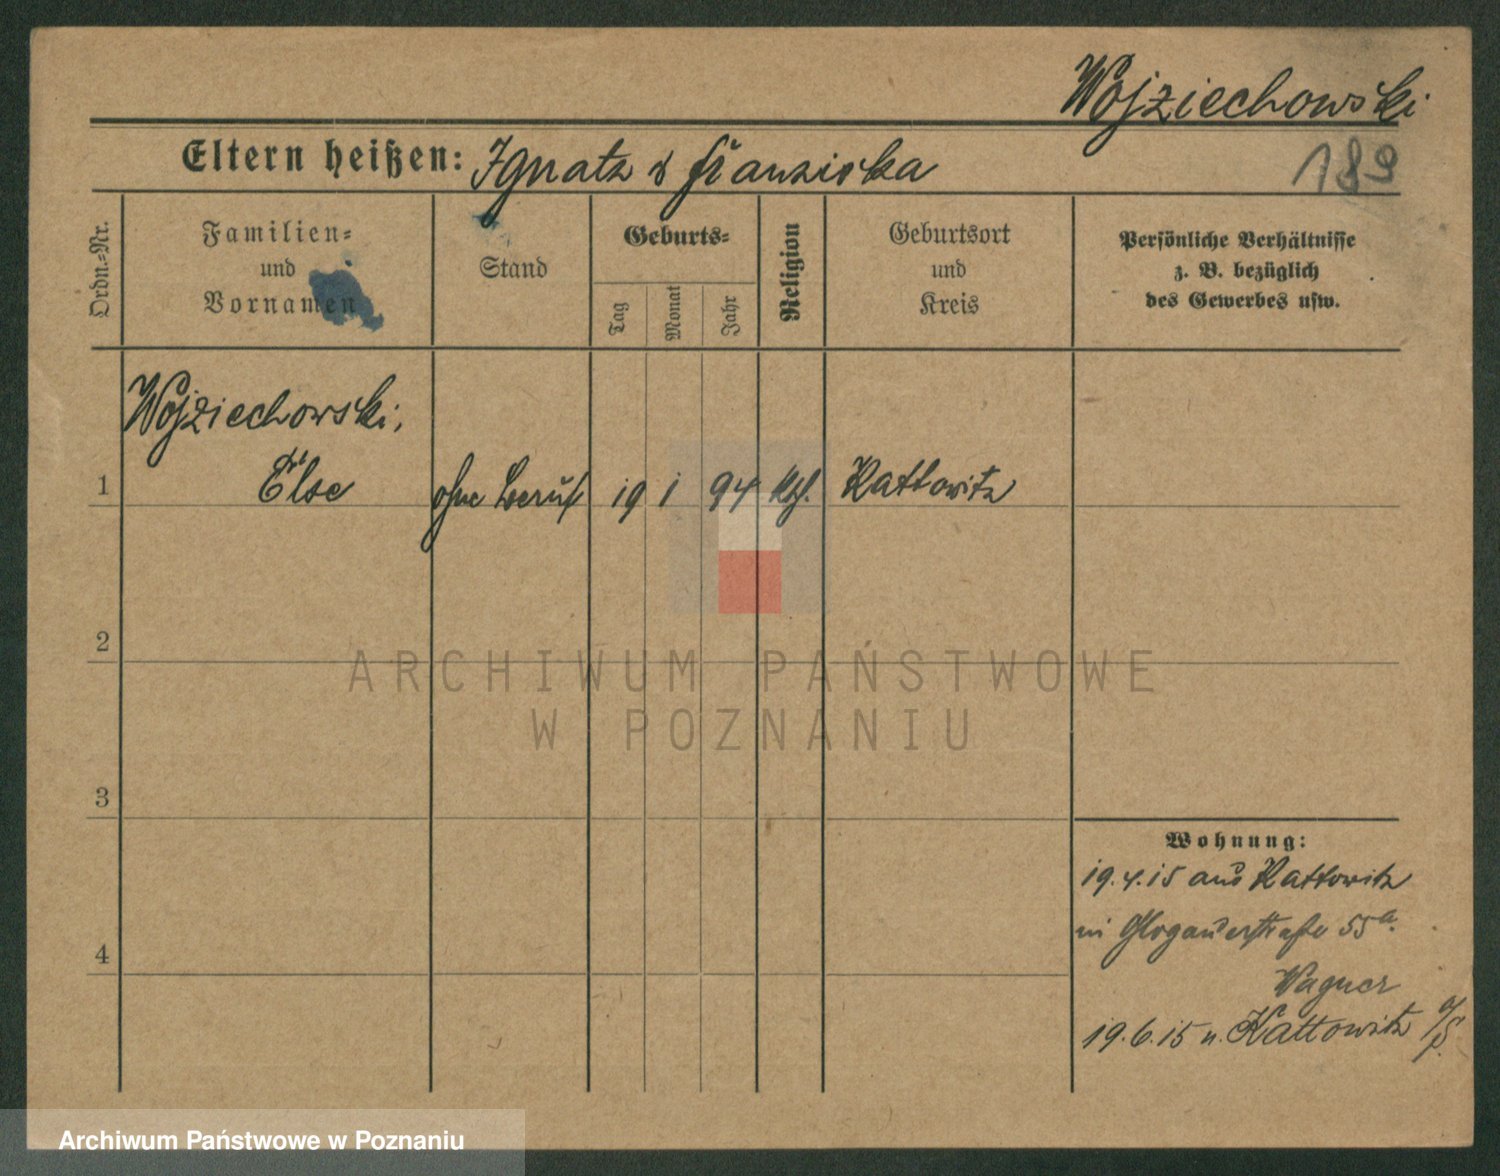 Wojziechowski
Eltern heißen: Ignatz & Franziska
189
Ordn.-Nr.
Familien-
und
Vornamen
Stand
Geburts-
Tag
Monat
Jahr
Religion
Geburtsort
und
Kreis
Persönliche Verhältnisse
z. B. bezüglich
des Gewerbes usw.
Wojziechowski,
1 Else ohne Beruf 19 1 94 Kattowitz
2
3
4
Wohnung:
19.4.15 aus Kattowitz
in Glogauerstraße 55a.
Wagner
19.6.15 n. Kattowitz O/S.
ARCHIWUM PAŃSTWOWE
W POZNANIU
Archiwum Państwowe w Poznaniu